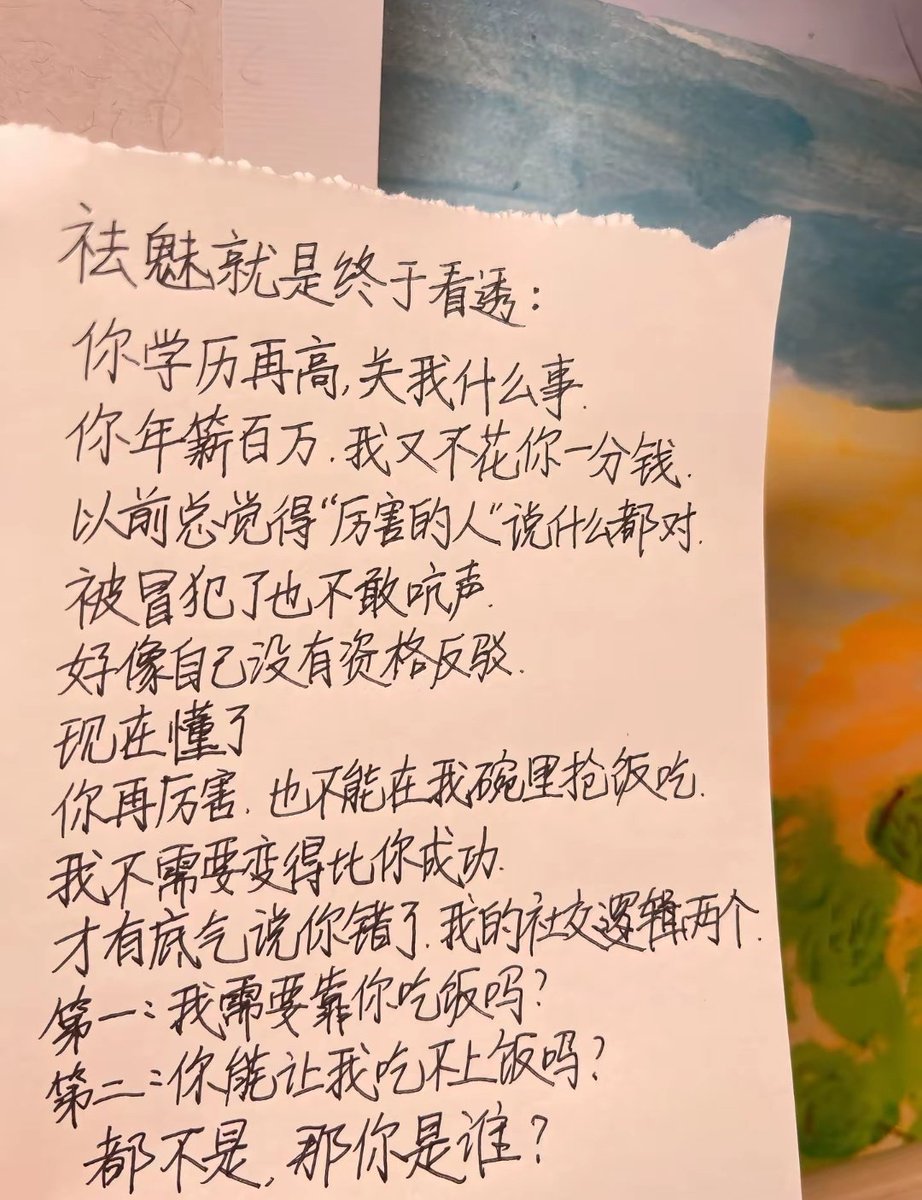 祛魅就是终于看透：
你学历再高,关我什么事.
你年薪百万.我又不花你一分钱.
以前总觉得“厉害的人”说什么都对.
被冒犯了也不敢吭声.
好像自己没有资格反驳.
现在懂了
你再厉害.也不能在我碗里抢饭吃.
我不需要变得比你成功.
才有底气说你错了.我的社交逻辑两个.
第一:我需要靠你吃饭吗?
第二:你能让我吃不上饭吗?
都不是,那你是谁?